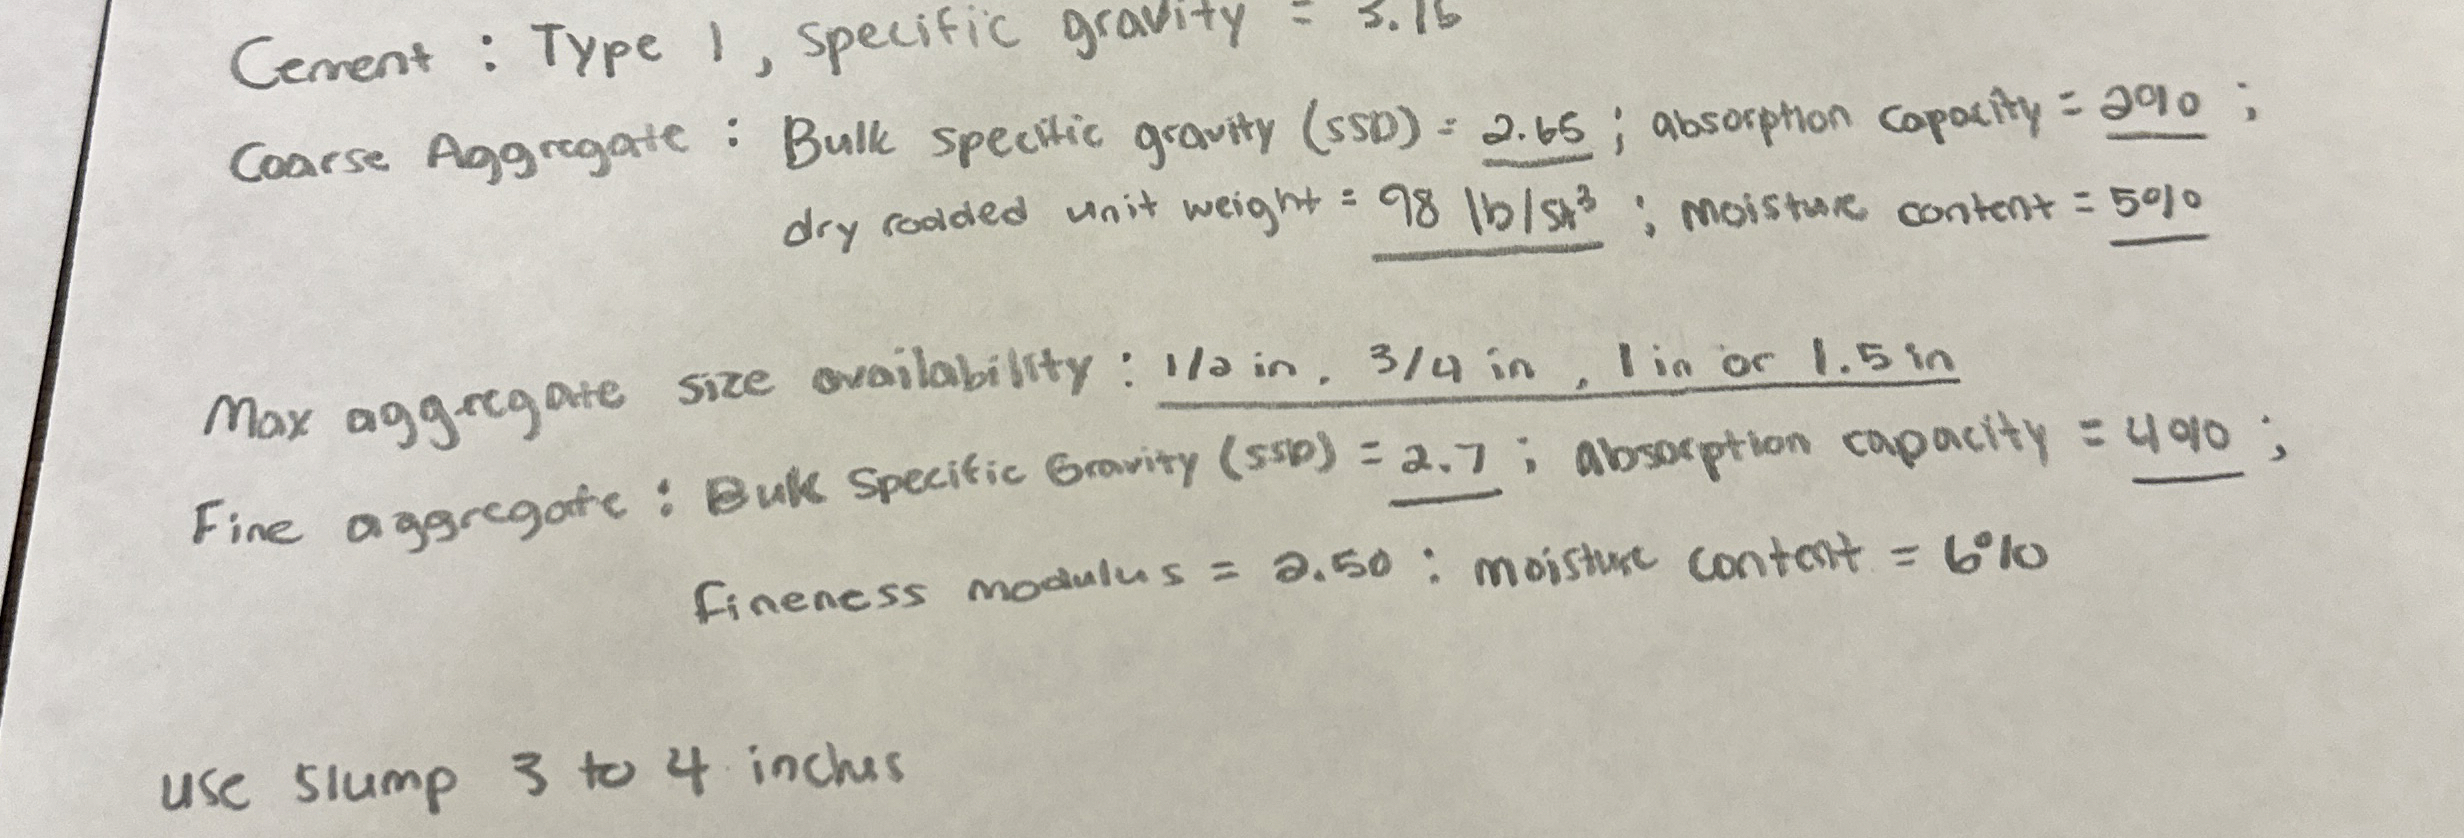 Cement : Type 1, specific gravity = 3.15
Coarse Aggregate : Bulk specific gravity (SSD) = 2.65 ; absorption capacity = 2% ;
dry rodded unit weight = 98 lb/ft³ ; moisture content = 5%
Max aggregate size availability : 1/2 in, 3/4 in, 1 in or 1.5 in
Fine aggregate : Bulk Specific Gravity (SSD) = 2.7 ; absorption capacity = 4% ;
fineness modulus = 2.50 ; moisture content = 6%
use slump 3 to 4 inches